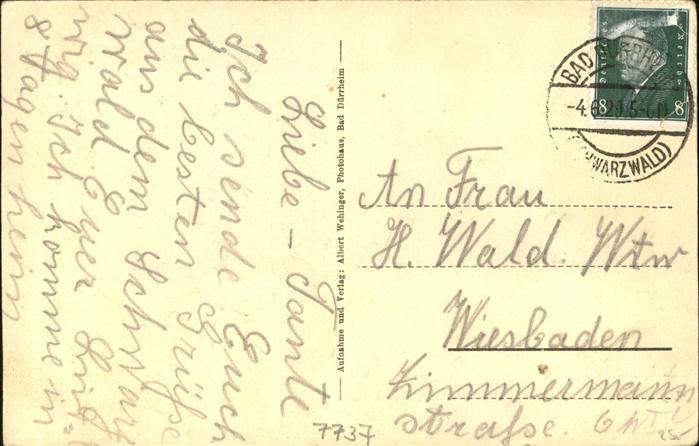 Liebe - Tante
Ich sende Euch
die besten Grüße
aus dem Schwarz
wald Euer
Ich komme in
8 Tagen heim
Aufnahme und Verlag: Albert Wehinger, Photohaus, Bad Dürrheim
BAD DÜRRHEIM
-4.6.29.5-6N
(SCHWARZWALD)
Deutsches Reich
8 8
An Frau
H. Wald. Wtw
Wiesbaden
Zimmermann
straße. 6
7737
25-